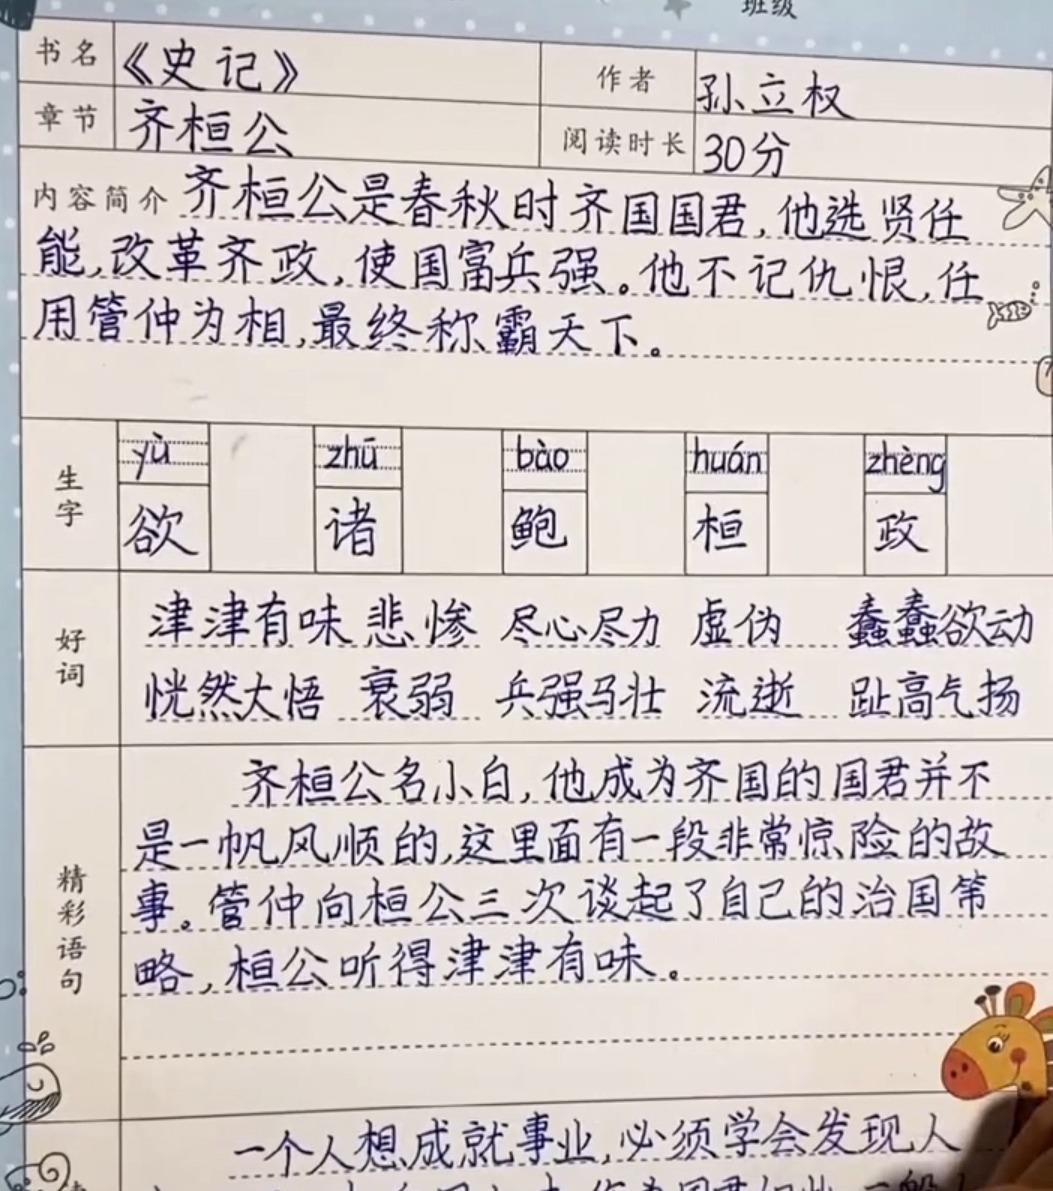 班级
书名 《史记》 作者 孙立权
章节 齐桓公 阅读时长 30分
内容简介 齐桓公是春秋时齐国国君,他选贤任
能,改革齐政,使国富兵强。他不记仇恨,任
用管仲为相,最终称霸天下。
yù zhū bào huán zhèng
生字 欲 诸 鲍 桓 政
好词 津津有味 悲惨 尽心尽力 虚伪 蠢蠢欲动
恍然大悟 衰弱 兵强马壮 流逝 趾高气扬
齐桓公名小白,他成为齐国的国君并不
是一帆风顺的,这里面有一段非常惊险的故
精彩语句 事。管仲向桓公三次谈起了自己的治国策
略,桓公听得津津有味。
一个人想成就事业,必须学会发现人